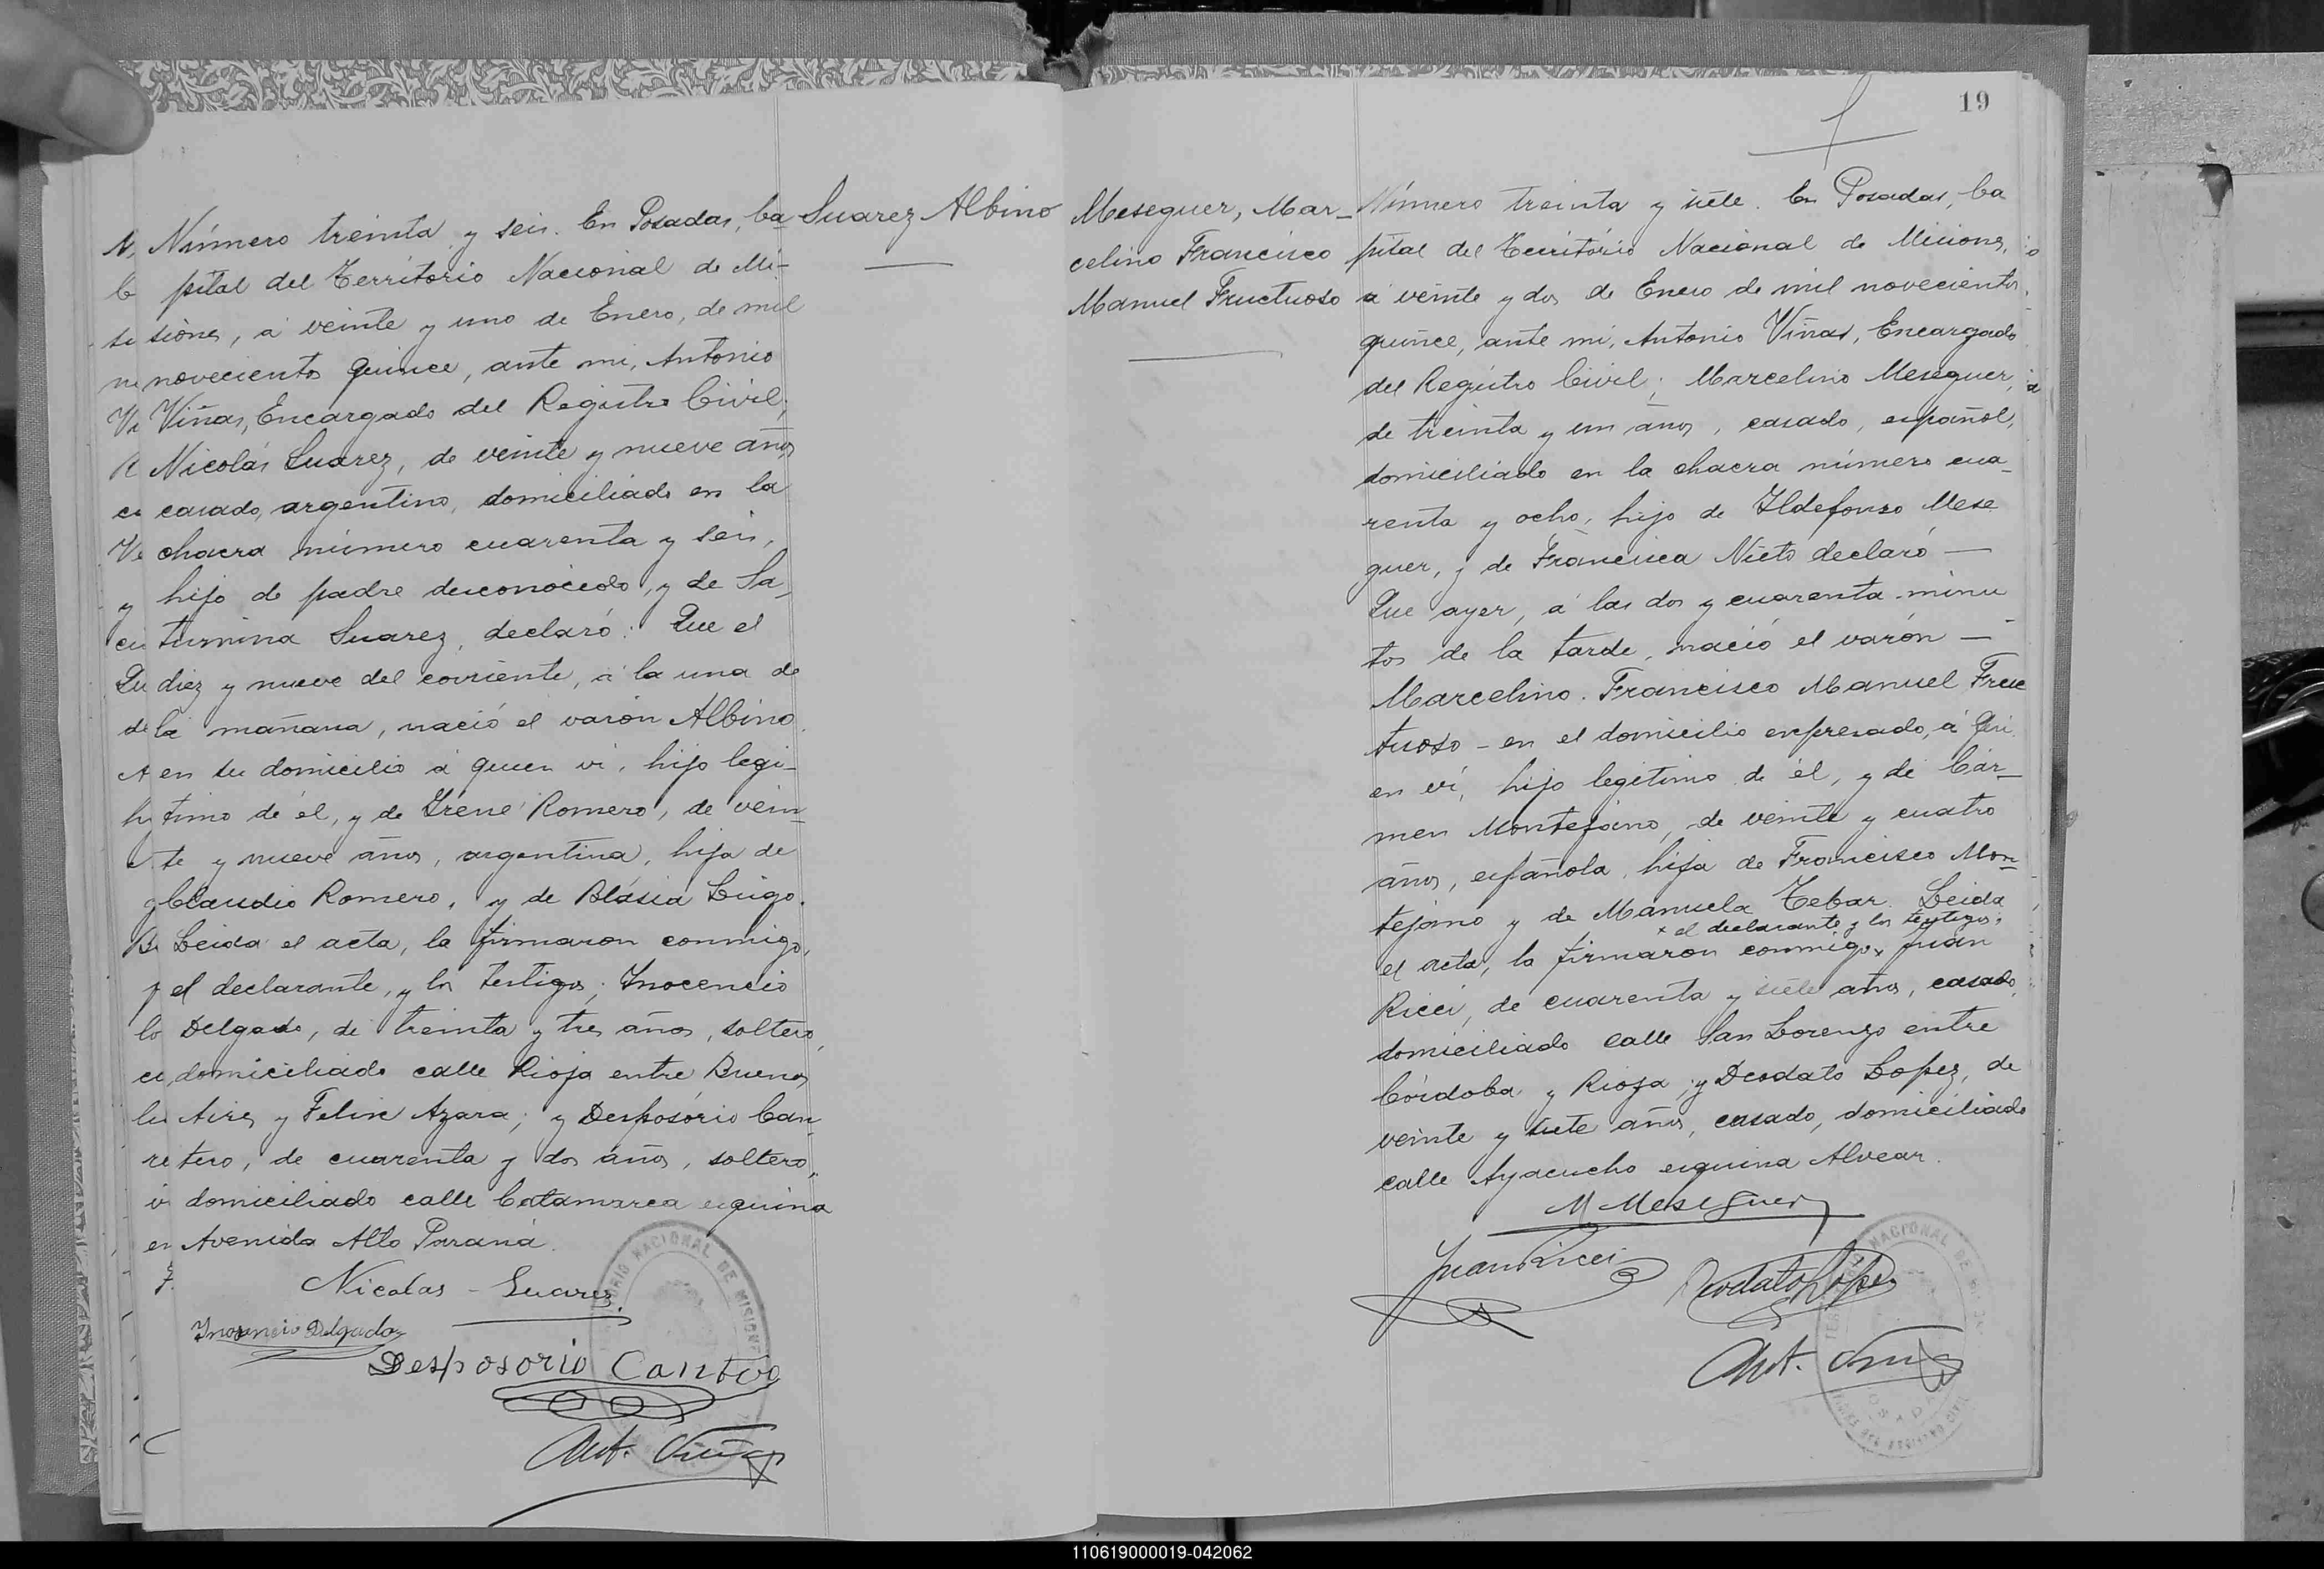 Suarez Albino
Número treinta y seis. En Posadas, Ca
pital del Território Nacional de Mi-
siones, á veinte y uno de Enero, de mil
novecientos quince, ante mi, Antonio
Viñas, Encargado del Registro Civil;
Nicolás Suarez, de veinte y nueve años
casado, argentino, domiciliado en la
chacra número cuarenta y seis,
hijo de padre desconocido, y de Sa
turnina Suarez, declaró: Que el
diez y nueve del corriente, á la una de
la mañana, nació el varón Albino
en su domicilio á quien vi, hijo legi-
timo de él, y de Irene Romero, de vein-
te y nueve años, argentina, hija de
Claudio Romero, y de Blásia Lugo.
Leida el acta, la firmaron conmigo,
el declarante, y los testigos; Inocencio
Delgado, de treinta y tres años, soltero,
domiciliado calle Rioja entre Buenos
Aires y Felix Azara; y Desposório Can
tero, de cuarenta y dos años, soltero,
domiciliado calle Catamarca esquina
Avenida Alto Paraná.
Nicolas - Suarez
Inosencio Delgado
Desposorio Cantero
Ant. Viñas
19
Meseguer, Mar-
celino Francisco
Manuel Fructuoso
Número treinta y siete. En Posadas, Ca
pital del Território Nacional de Misiones,
á veinte y dos de Enero de mil novecientos
quince, ante mi, Antonio Viñas, Encargado
del Registro Civil; Marcelino Meseguer,
de treinta y un años, casado, español,
domiciliado en la chacra número cua-
renta y ocho, hijo de Ildefonso Mese
guer, y de Francisca Nieto declaró —
Que ayer, á las dos y cuarenta minu
tos de la tarde, nació el varón —
Marcelino. Francisco Manuel Fruc
tuoso - en el domicilio expresado, á qui
en vi, hijo legitimo de él, y de Cár-
men Montejano, de veinte y cuatro
años, española, hija de Francisco Mon-
tejano y de Manuela Tebar. Leida
x el declarante y los testigos;
el acta, la firmaron conmigo x Juan
Ricci, de cuarenta y siete años, casado,
domiciliado calle San Lorenzo entre
Córdoba y Rioja; y Deodato Lopez, de
veinte y siete años, casado, domiciliado
calle Ayacucho esquina Alvear.
M Meseguer
Juan Ricci
Deodato Lopez
Ant. Viñas
110619000019-042062